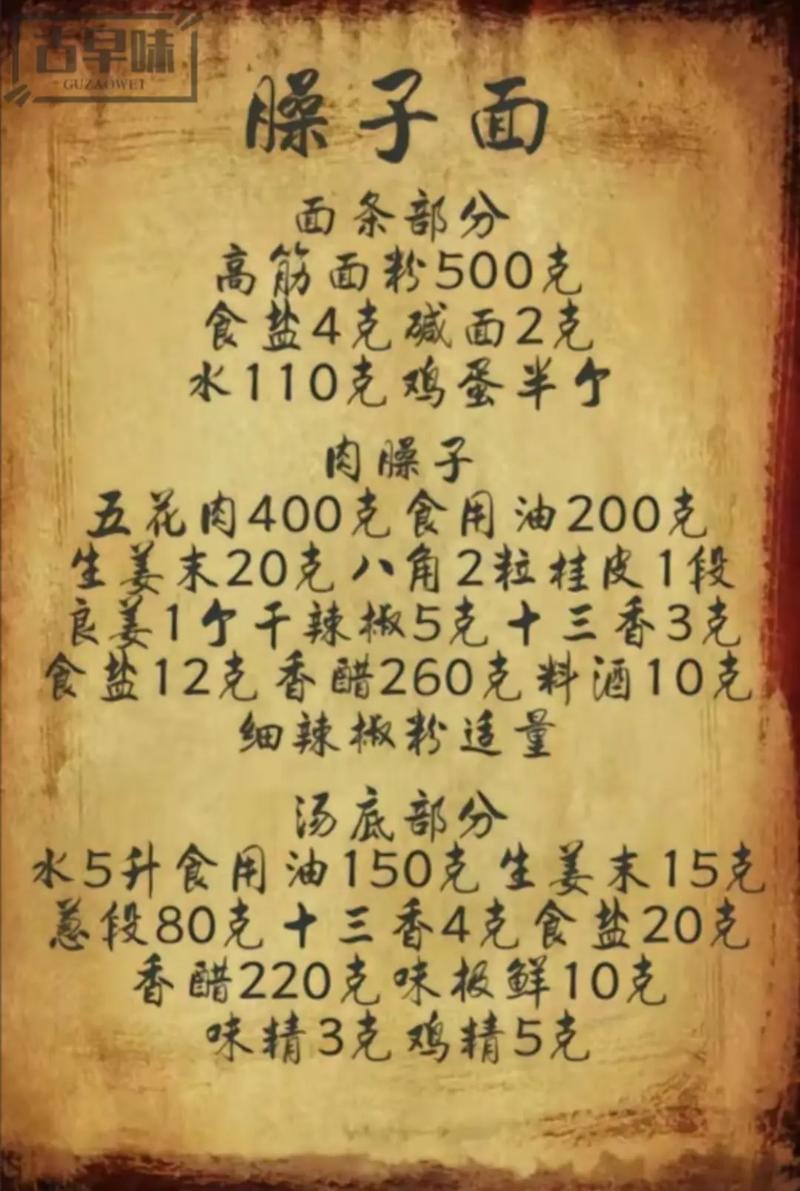 古早味
GUZAOWEI
臊子面
面条部分
高筋面粉500克
食盐4克 碱面2克
水110克 鸡蛋半个
肉臊子
五花肉400克 食用油200克
生姜末20克 八角2粒 桂皮1段
良姜1个 干辣椒5克 十三香3克
食盐12克 香醋260克 料酒10克
细辣椒粉适量
汤底部分
水5升 食用油150克 生姜末15克
葱段80克 十三香4克 食盐20克
香醋220克 味极鲜10克
味精3克 鸡精5克